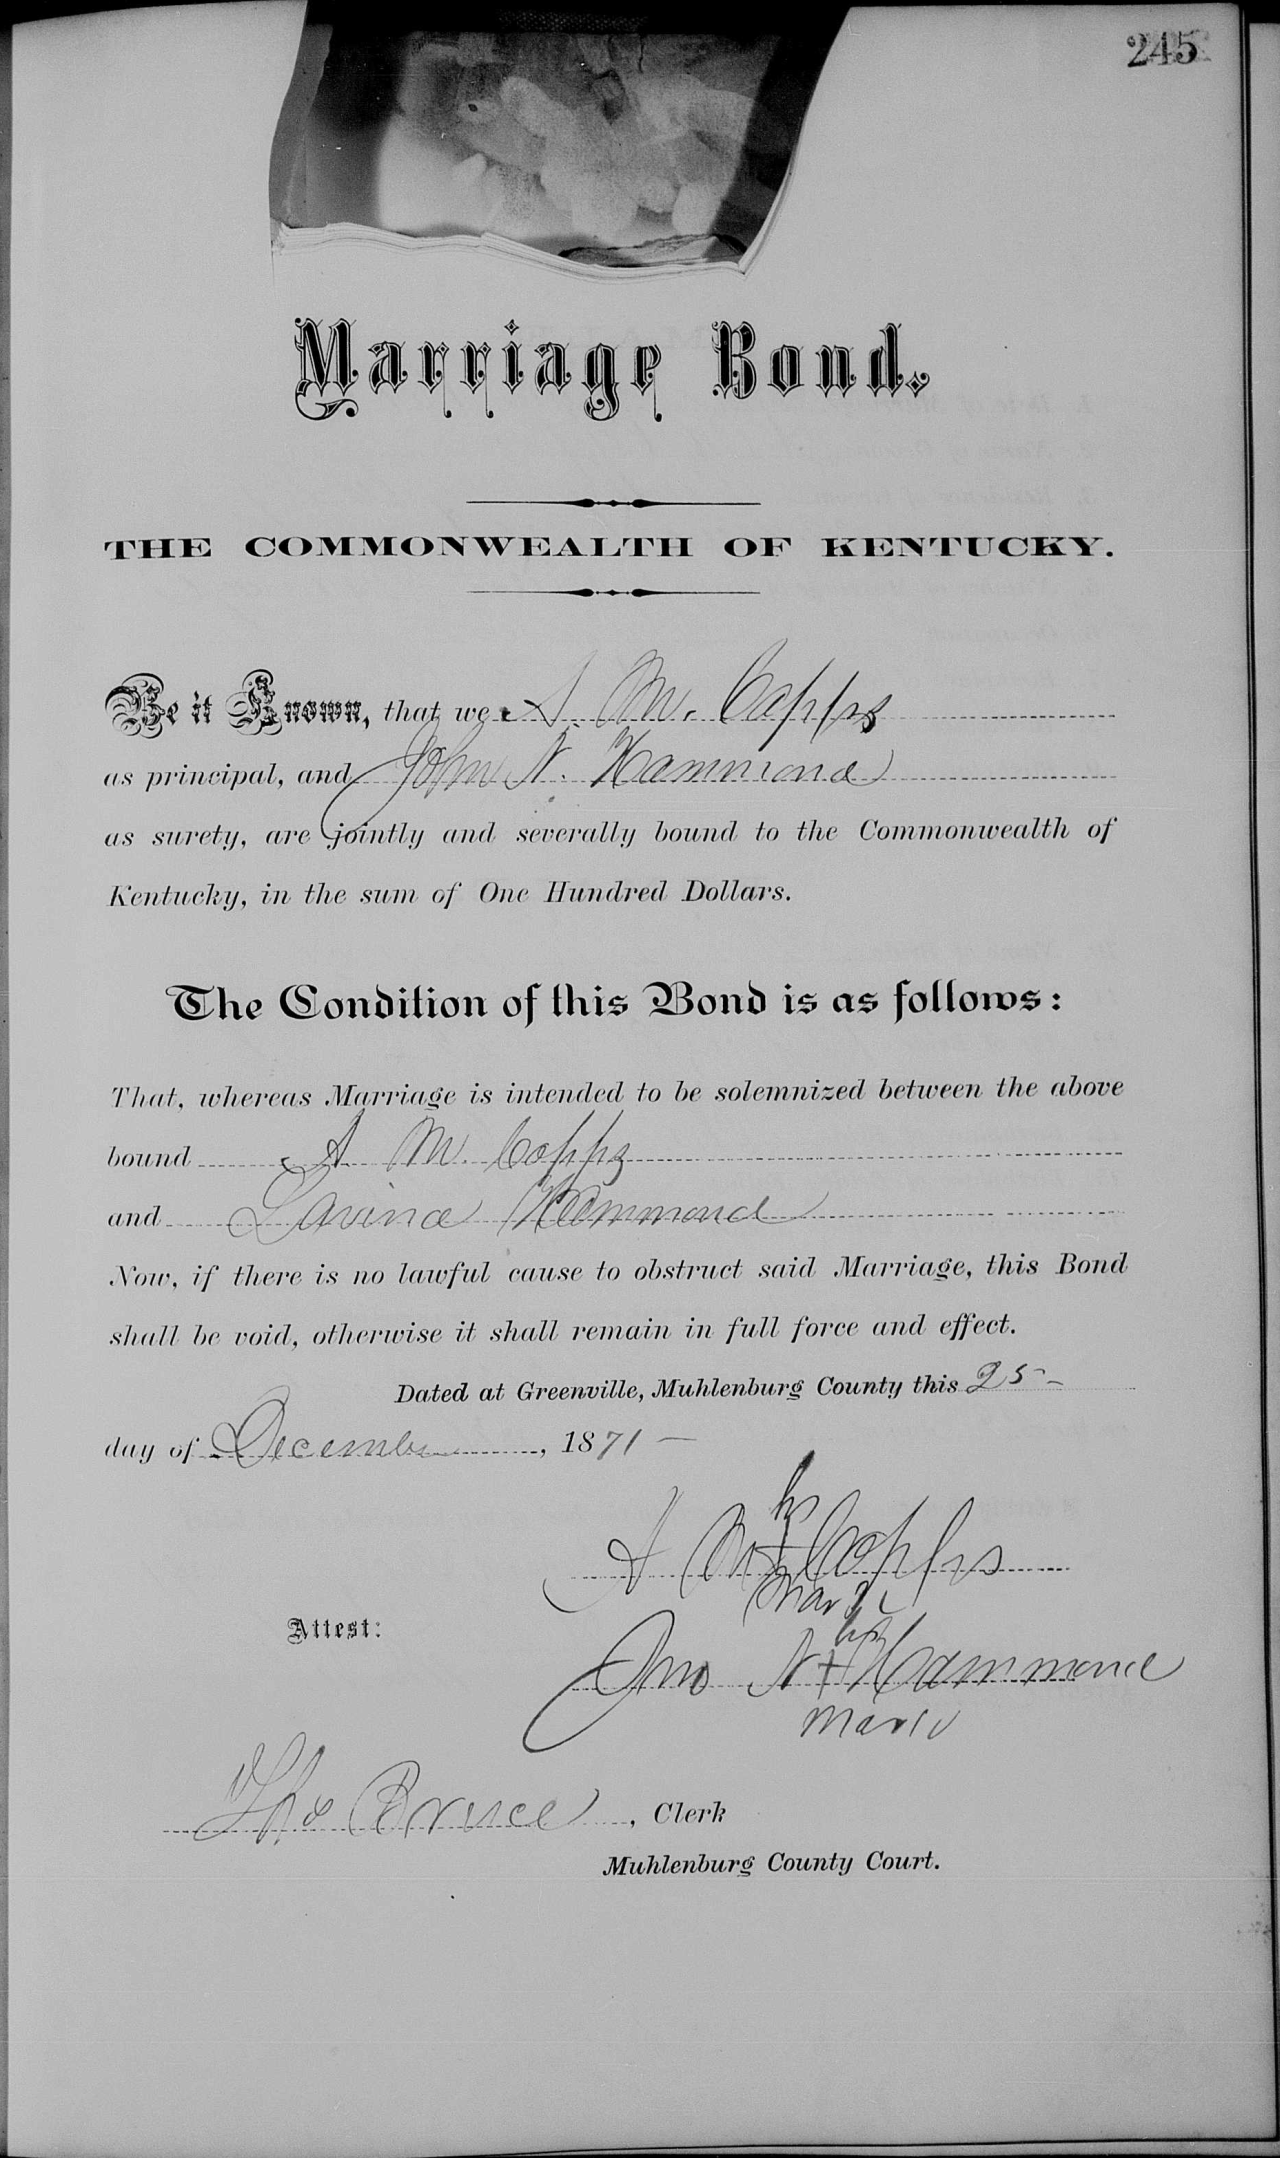 245
Marriage Bond.
THE COMMONWEALTH OF KENTUCKY.
Be it Known, that we A. M. Copps
as principal, and John N. Hammond
as surety, are jointly and severally bound to the Commonwealth of
Kentucky, in the sum of One Hundred Dollars.
The Condition of this Bond is as follows:
That, whereas Marriage is intended to be solemnized between the above
bound A M. Copps
and Lavina Hammond
Now, if there is no lawful cause to obstruct said Marriage, this Bond
shall be void, otherwise it shall remain in full force and effect.
Dated at Greenville, Muhlenburg County this 25-
day of December, 1871-
his
A M + Copps
mark
Attest:
his
Jno N + Hammond
mark
Tho Bruce, Clerk
Muhlenburg County Court.